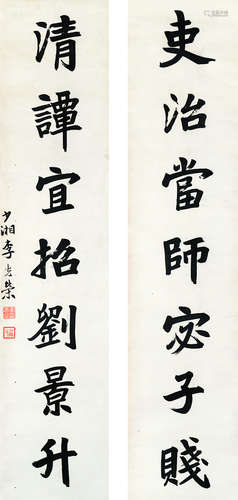 吏治當師宓子賤
清譚宜招劉景升
少湘李光榮